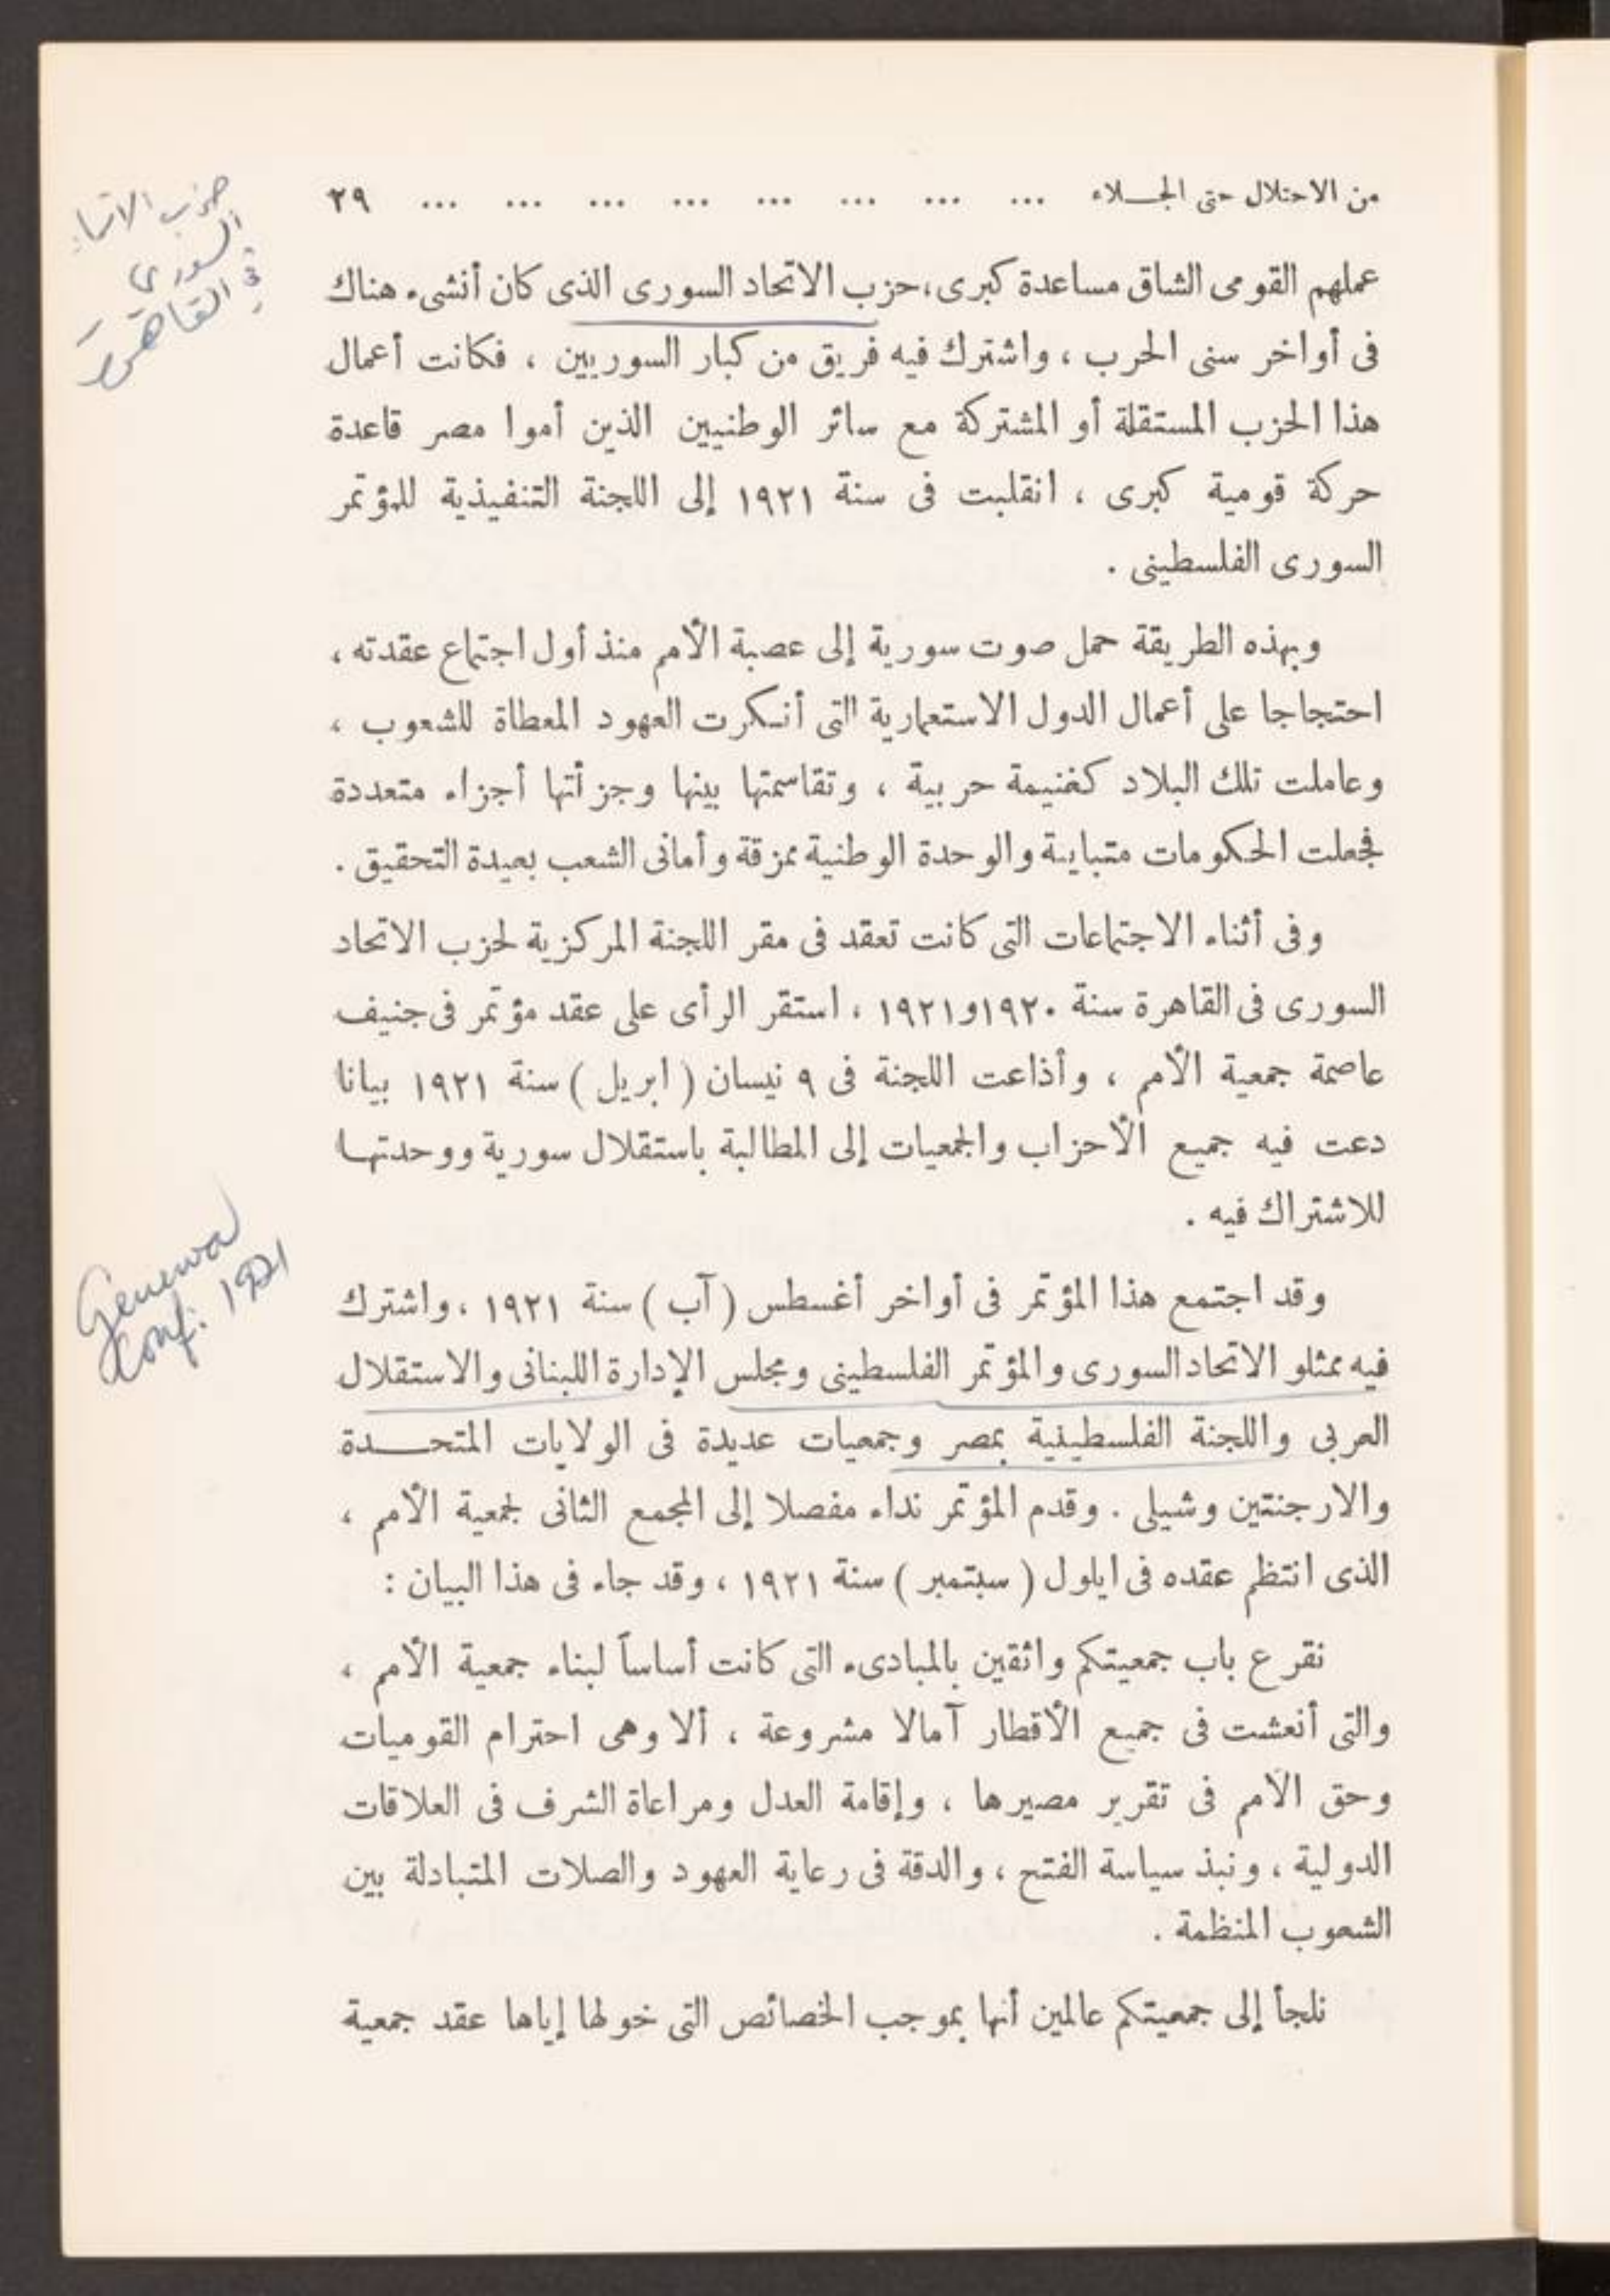 من الاحتلال حتى الجـــلاء ... ... ... ... ... ... ... ... ٢٩
حزب الاتحاد
السوري
في القاهرة
عملهم القومى الشاق مساعدة كبرى، حزب الاتحاد السورى الذى كان أنشىء هناك
فى أواخر سنى الحرب ، واشترك فيه فريق من كبار السوريين ، فكانت أعمال
هذا الحزب المستقلة أو المشتركة مع سائر الوطنيين الذين أموا مصر قاعدة
حركة قومية كبرى ، انقلبت فى سنة ١٩٢١ إلى اللجنة التنفيذية للمؤتمر
السورى الفلسطينى .
وبهذه الطريقة حمل صوت سورية إلى عصبة الأمم منذ أول اجتماع عقدته ،
احتجاجا على أعمال الدول الاستعمارية التى أنكرت العهود المعطاة للشعوب ،
وعاملت تلك البلاد كغنيمة حربية ، وتقاسمتها بينها وجزأتها أجزاء متعددة
فجعلت الحكومات متباينة والوحدة الوطنية ممزقة وأمانى الشعب بعيدة التحقيق .
وفى أثناء الاجتماعات التى كانت تعقد فى مقر اللجنة المركزية لحزب الاتحاد
السورى فى القاهرة سنة ١٩٢٠و١٩٢١ ، استقر الرأى على عقد مؤتمر فى جنيف
عاصمة جمعية الأمم ، وأذاعت اللجنة فى ٩ نيسان ( ابريل ) سنة ١٩٢١ بيانا
دعت فيه جميع الأحزاب والجمعيات إلى المطالبة باستقلال سورية ووحدتهـا
للاشتراك فيه .
Geneva
Conf. 1921
وقد اجتمع هذا المؤتمر فى أواخر أغسطس ( آب ) سنة ١٩٢١ ، واشترك
فيه ممثلو الاتحاد السورى والمؤتمر الفلسطينى ومجلس الإدارة اللبنانى والاستقلال
العربى واللجنة الفلسطينية بمصر وجمعيات عديدة فى الولايات المتحـــدة
والارجنتين وشيلى . وقدم المؤتمر نداء مفصلا إلى المجمع الثانى لجمعية الأمم ،
الذى انتظم عقده فى ايلول ( سبتمبر ) سنة ١٩٢١ ، وقد جاء فى هذا البيان :
نقرع باب جمعيتكم واثقين بالمبادىء التى كانت أساساً لبناء جمعية الأمم ،
والتى أنعشت فى جميع الأقطار آمالا مشروعة ، ألا وهى احترام القوميات
وحق الأمم فى تقرير مصيرها ، وإقامة العدل ومراعاة الشرف فى العلاقات
الدولية ، ونبذ سياسة الفتح ، والدقة فى رعاية العهود والصلات المتبادلة بين
الشعوب المنظمة .
نلجأ إلى جمعيتكم عالمين أنها بموجب الخصائص التى خولها إياها عقد جمعية